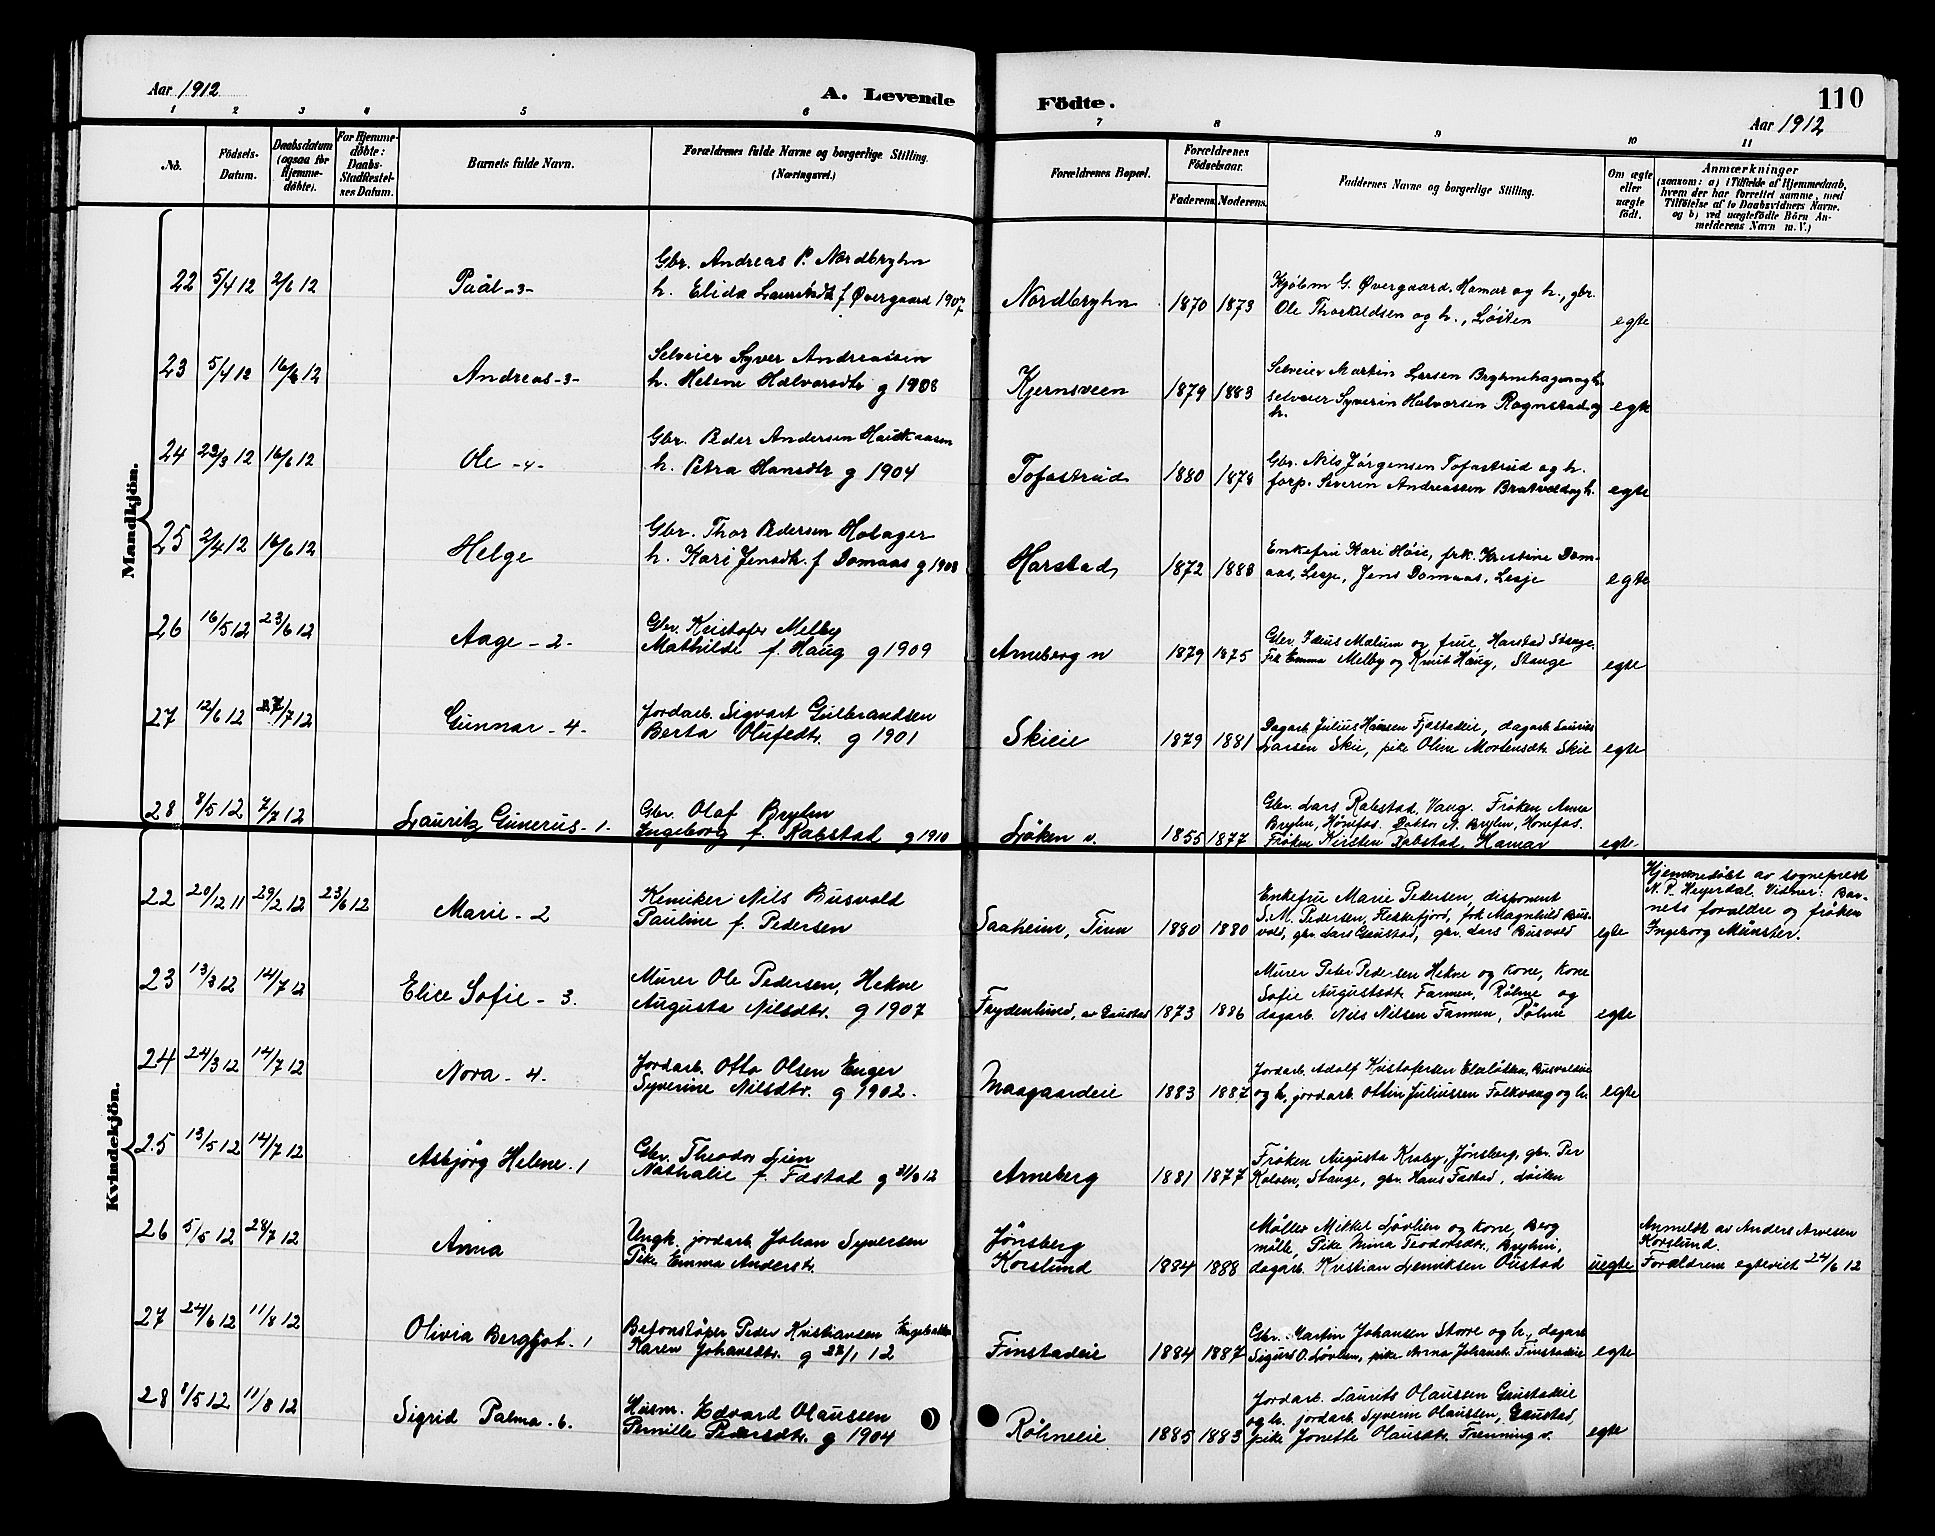 Aar 1912
A. Levende
Födte.
110
Aar 1912
1 2 3 4 5 6 7 8 9 10 11
No.
Födsels-
Datum.
Daabsdatum
(ogsaa for
Hjemme-
døbte).
For Hjemme-
døbte:
Daabs-
Stadfæstel-
ses Datum.
Barnets fulde Navn.
Forældrenes fulde Navne og borgerlige Stilling.
(Næringsvei.)
Forældrenes Bopæl.
Forældrenes
Födselsaar.
Faderens. Moderens.
Faddernes Navne og borgerlige Stilling.
Om ægte
eller
uægte
født.
Anmærkninger
(saasom: a) i Tilfælde af Hjemmedaab,
hvem der har forrettet samme, med
Tilføielse af to Daabsvidners Navne.
og b) ved uægtefødte Börn An-
melderens Navn m. V.)
Mandkjön.
22 5/4 12 2/6 12 Paal -3- Gbr. Andreas P. Nordbryhn
h. Elida Lauritzdtr f Øvergaard 1907
Nordbryhn 1870 1873 Kjøbm G. Øvergaard, Hamar og h., gbr.
Ole Thorkildsen og h., Løiten egte
23 5/4 12 16/6 12 Andreas -3- Selveier Syver Andreassen
h. Helene Halvorsdtr g 1908
Kjernsveen 1879 1883 Selveier Martin Larsen Bryhnhagen og h.
selveier Syverin Halvorsen Rognstad og
h. egte
24 23/3 12 16/6 12 Ole -4- Gbr. Peder Andersen Haukaasen
h. Petra Hansdtr g 1904
Tofastrud 1880 1878 Gbr. Nils Jörgensen Tofastrud og h.
forp. Severin Andreassen Bratvold og h. egte
25 2/4 12 16/6 12 Helge Gbr. Thor Pedersen Hobager
h. Kari Jensdtr. f Domaas g 1908
Harstad 1872 1888 Enkefru Kari Høie, frk. Kristine Dom-
aas, Lesje, Jens Domaas, Lesje egte
26 16/5 12 23/6 12 Aage -2- Gbr. Kristofer Melby
Mathilde f. Haug g 1909
Arneberg n 1879 1875 Gbr. Mælum og frue, Harstad Stange.
Frk Emma Melby og Knut Haug, Stange egte
27 12/6 12 7/7 12 Gunnar -4- Jordarb. Sigvart Gulbrandsen
Berta Olufsdtr. g 1901
Skieie 1879 1881 Dagarb. Julius Hansen Fjestadeie, dagarb. Laurits
Larsen Skie, pike Oline Mortensdtr. Skie egte
28 8/5 12 7/7 12 Lauritz Gunerus -1- Gbr. Olaf Bryhn
Ingeborg f. Rabstad g 1910
Løken v. 1855 1877 Gbr. Lars Rabstad, Vang. Frøken Anna
Bryhn, Hønefos. Doktor N. Bryhn, Hønefos.
Frøken Kirsten Rabstad, Hamar egte
Kvindekjön.
22 20/12 11 29/2 12 23/6 12 Marie -2 Kemiker Nils Busvold
Pauline f. Pedersen
Saaheim, Tinn 1880 1880 Enkefrue Marie Pedersen, disponent
S. M. Pedersen, Hekkefjord, frk Magnhild Bus-
vold, gbr. Lars Gaustad, gbr. Lars Busvold egte
Hjemmedøbt av sogneprest
N. P. Heyerdal. Vidner: Bar-
nets forældre og frøken
Ingeborg Münster.
23 13/3 12 14/7 12 Elice Sofie -3. Murer Ole Pedersen, Hekne
Augusta Nilsdtr. g 1907
Frydenlund, av Gaustad 1873 1886 Murer Peter Pedersen Hekne og kone, kone
Sofie Augustsdtr Farmen, Røhne og
dagarb. Nils Nilsen Farmen, Røhne egte
24 24/3 12 14/7 12 Nora -4. Jordarb. Otto Olsen Enger
Syverine Nilsdtr. g 1902.
Maagaardeie 1883 1887 Jordarb. Adolf Kristofersen Busvoldeie
og h, jordarb. Ottin Juliussen Folkvang og h. egte
25 13/5 12 14/7 12 Asbjørg Helene -1 Gbr. Theodor Lien
Nathalie f. Fæstad g 21/6 12
Arneberg 1881 1877 Frøken Augusta Kraby, Jønsberg, gbr. Per
Kolsen, Stange, gbr. Hans Fæstad, Løiten
26 5/5 12 28/7 12 Anna Ungk. jordarb Johan Syversen
Pike Emma Andersdtr.
Jønsberg
Korslund 1884 1888 Møller Mikkel Løvlien og kone, Berg
mølle, Pike Nina Teodorsdtr. Bryhni,
dagarb. Kristian Lenriksen Oustad uegte
Anmeldt av Anders Arvesen
Korslund.
Forældrene egteviet 24/6 12
27 24/6 12 11/8 12 Olivia Bergljot -1 Betonstøper Peder Kristiansen Engebakken
Karen Johansdtr. g 28/1 12
Finstadeie 1884 1887 Gbr. Martin Johansen Storre og h., dagarb
Sigurd O. Løvlien, pike Anna Johansdtr Finstadeie egte
28 8/5 12 11/8 12 Sigrid Palma -6. Husm. Edvard Olaussen
Pernille Pedersdtr. g 1904
Røhneeie 1885 1883 Jordarb. Laurits Olaussen Gaustadeie
og h. jordarb. Syverin Olaussen, Gaustad,
pike Jonette Olausdtr. Frenning v. egte